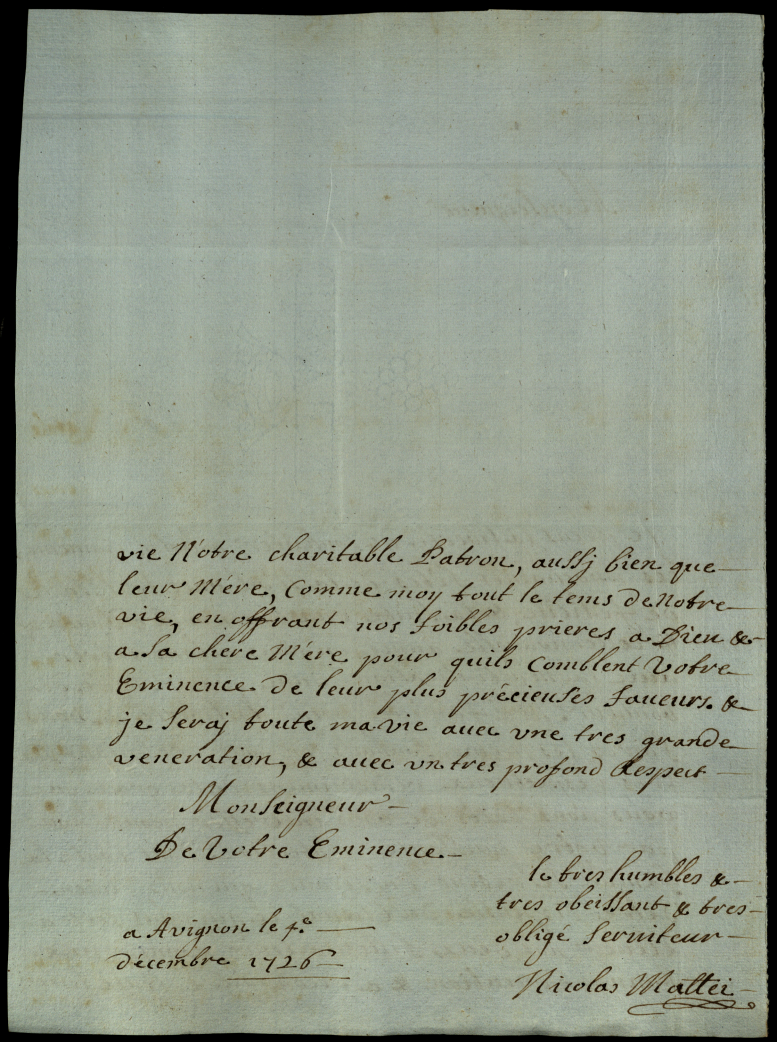 vie Nôtre charitable Patron, aussj bien que
leur Mére, comme moy tout le tems de Notre
vie, en offrant nos foibles prieres a Dieu &
a Sa chére Mére pour quils comblent Votre
Eminence de leur plus précieuses faueurs. &
je Seraj toute ma vie auec vne tres grande
veneration, & auec vn tres profond Respect
Monseigneur
De Votre Eminence
le tres humbles &
tres obeissant & tres
obligé Seruiteur
a Avignon le 4.e
décembre 1726
Nicolas Mattei